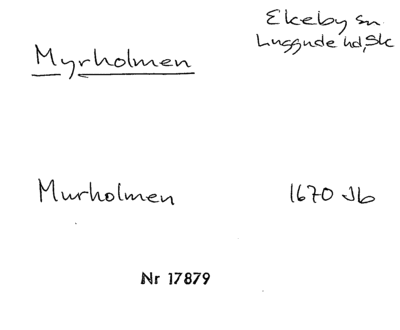 Myrholmen
Ekeby sn
Luggude hd, Sk
Murholmen
1670 Jb
Nr 17879